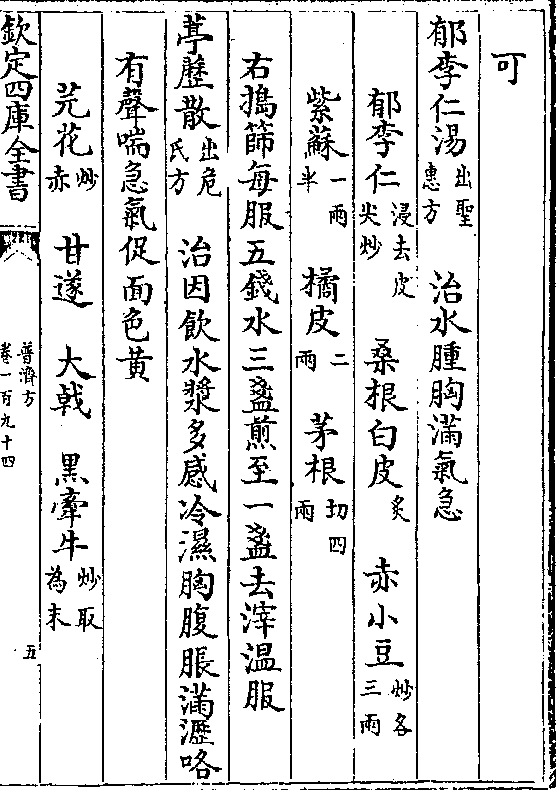 可
郁李仁湯出聖惠方 治水腫胸滿氣急
郁李仁浸去皮尖炒 桑根白皮炙 赤小豆炒各三兩
紫蘇一兩半 橘皮二兩 茅根切四兩
右搗篩每服五錢水三盞煎至一盞去滓温服
葶藶散出危氏方 治因飲水漿多感冷濕胸腹脹滿瀝咯
有聲喘急氣促面色黄
芫花炒赤 甘遂 大戟 黑牽牛炒取為末
欽定四庫全書 普濟方卷一百九十四 五